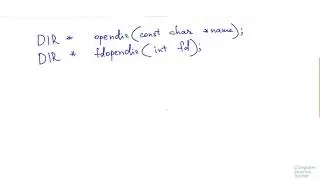 DIR * opendir(const char *name);
DIR * fdopendir(int fd);
Computer
Science